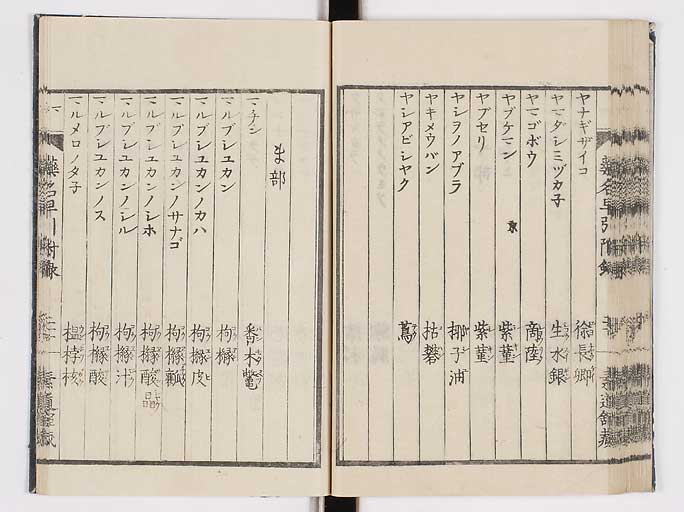 ヤナギザイコ 徐長卿
ヤマダシミヅカ子 生水銀
ヤマゴボウ 商陸
ヤブケマン 紫菫
ヤブセリ 紫菫
ヤシヲノアブラ 揶子油
ヤキメウバン 枯礬
ヤシアビシヤク 蔦
ま部
マチン 番木鼈
マルブシユカン 枸櫞
マルブシユカンノカハ 枸櫞皮
マルブシユカンノサナゴ 枸櫞瓤
マルブシユカンノシホ 枸櫞酸晶
マルブシユカンノシル 枸櫞汁
マルブシユカンノス 枸櫞酸
マルメロノタ子 榲桲核
藥名早引附録